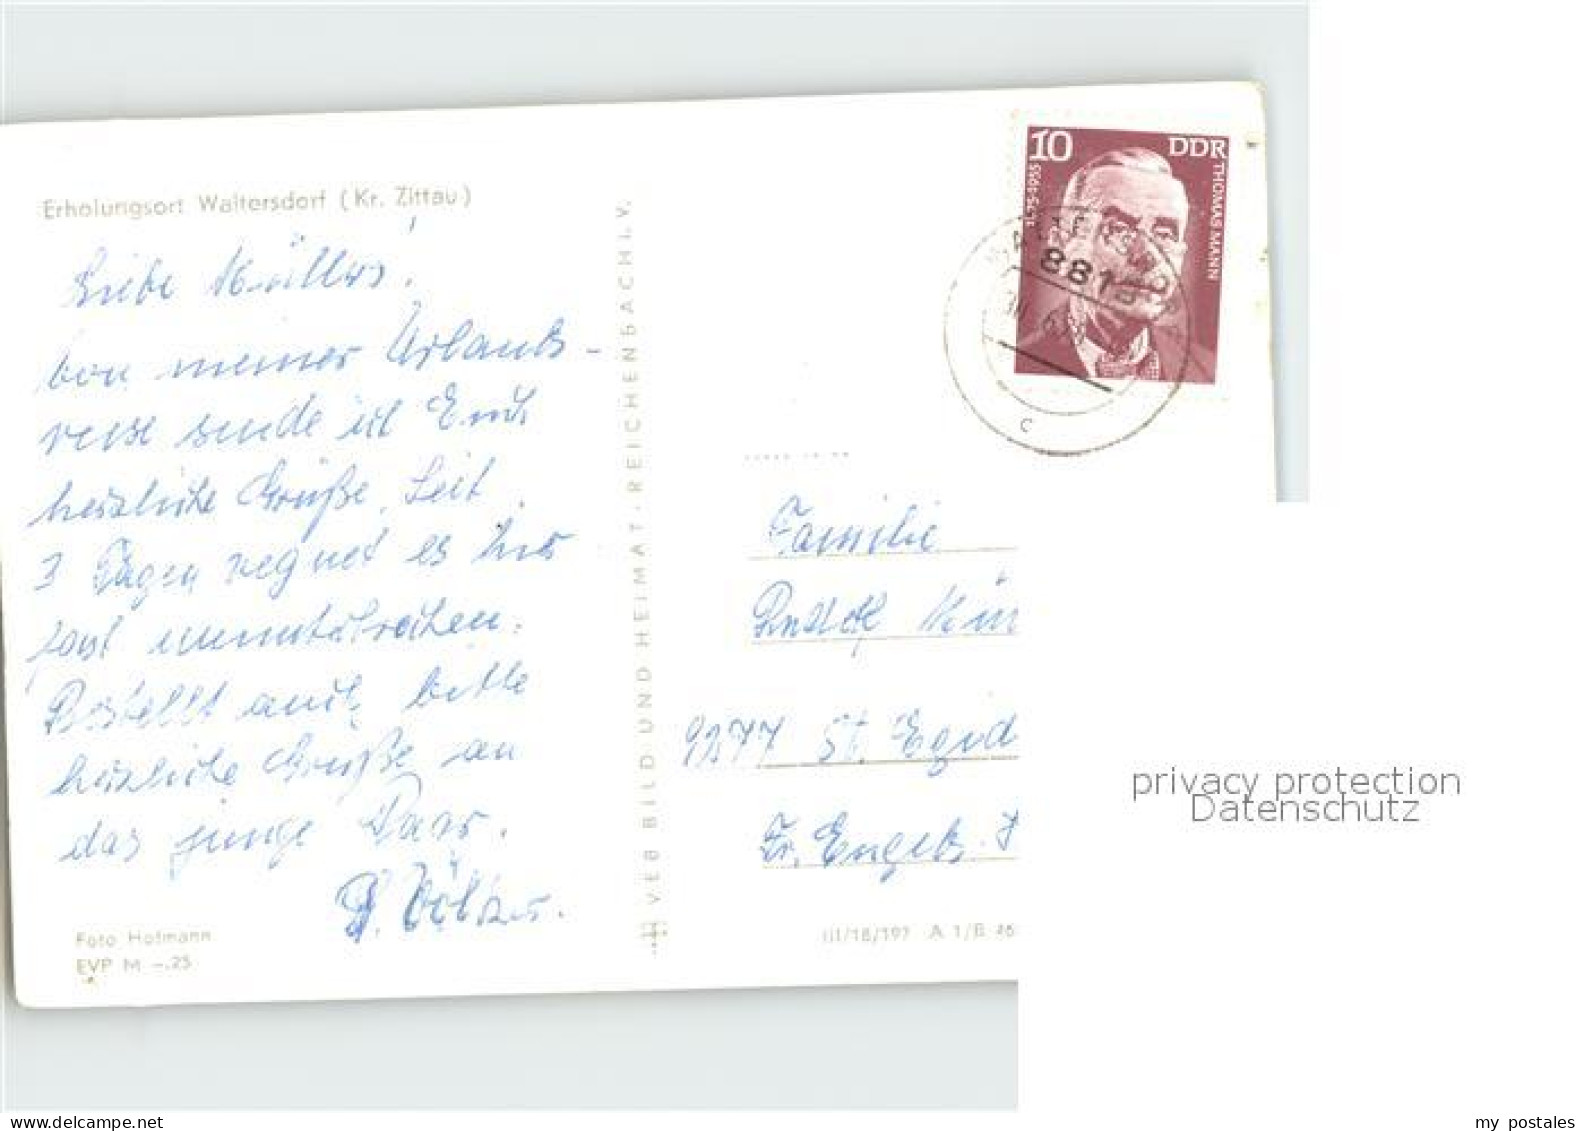 Erholungsort Waltersdorf (Kr. Zittau)
Liebe Müllers!
Von meiner Urlaubs-
reise sende ich Euch
herzliche Grüße. Seit
3 Tagen regnet es hier
fast ununterbrochen.
Bestellt auch bitte
herzliche Grüße an
das junge Paar.
Foto Hofmann
EVP M -.25
VEB BILD UND HEIMAT · REICHENBACH I. V.
10 DDR
THOMAS MANN
1875·1955
8813
c
Familie
Rudolf
9277 St. Egid
Fr. Engels
III/18/197 A 1/B 46
privacy protection
Datenschutz
www.delcampe.net
my postales